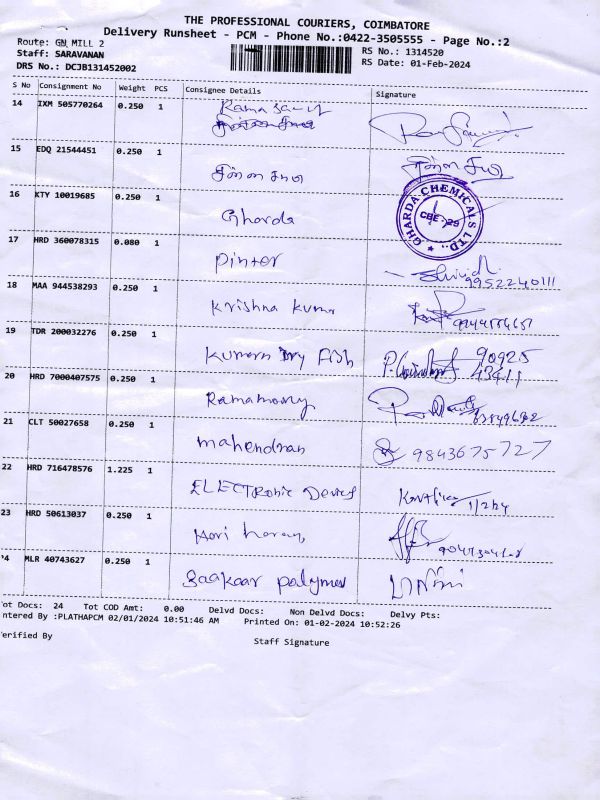 THE PROFESSIONAL COURIERS, COIMBATORE
Delivery Runsheet - PCM - Phone No.:0422-3505555 - Page No.:2
Route: GN MILL 2
RS No.: 1314520
Staff: SARAVANAN
RS Date: 01-Feb-2024
DRS No.: DCJB131452002
S No Consignment No Weight PCS Consignee Details Signature
14 IXM 505770264 0.250 1
15 EDQ 21544451 0.250 1
சின்ன சாமி சின்ன சாமி
16 KTY 10019685 0.250 1 Gharda
GHARDA CHEMICALS LTD.
CBE-29
17 HRD 360078315 0.080 1 Pinter
9952240111
18 MAA 944538293 0.250 1 Krishna Kuma
19 TDR 200032276 0.250 1 Kumaran Dry Fish
90925
43411
20 HRD 7000407575 0.250 1 Ramamoorthy
21 CLT 50027658 0.250 1 mahendran 9843675727
22 HRD 716478576 1.225 1 ELECTRONIC Devices 1/2/24
23 HRD 50613037 0.250 1 Hari haran
24 MLR 40743627 0.250 1 Saakaar polymer
ot Docs: 24 Tot COD Amt: 0.00 Delvd Docs: Non Delvd Docs: Delvy Pts:
ntered By :PLATHAPCM 02/01/2024 10:51:46 AM Printed On: 01-02-2024 10:52:26
erified By Staff Signature